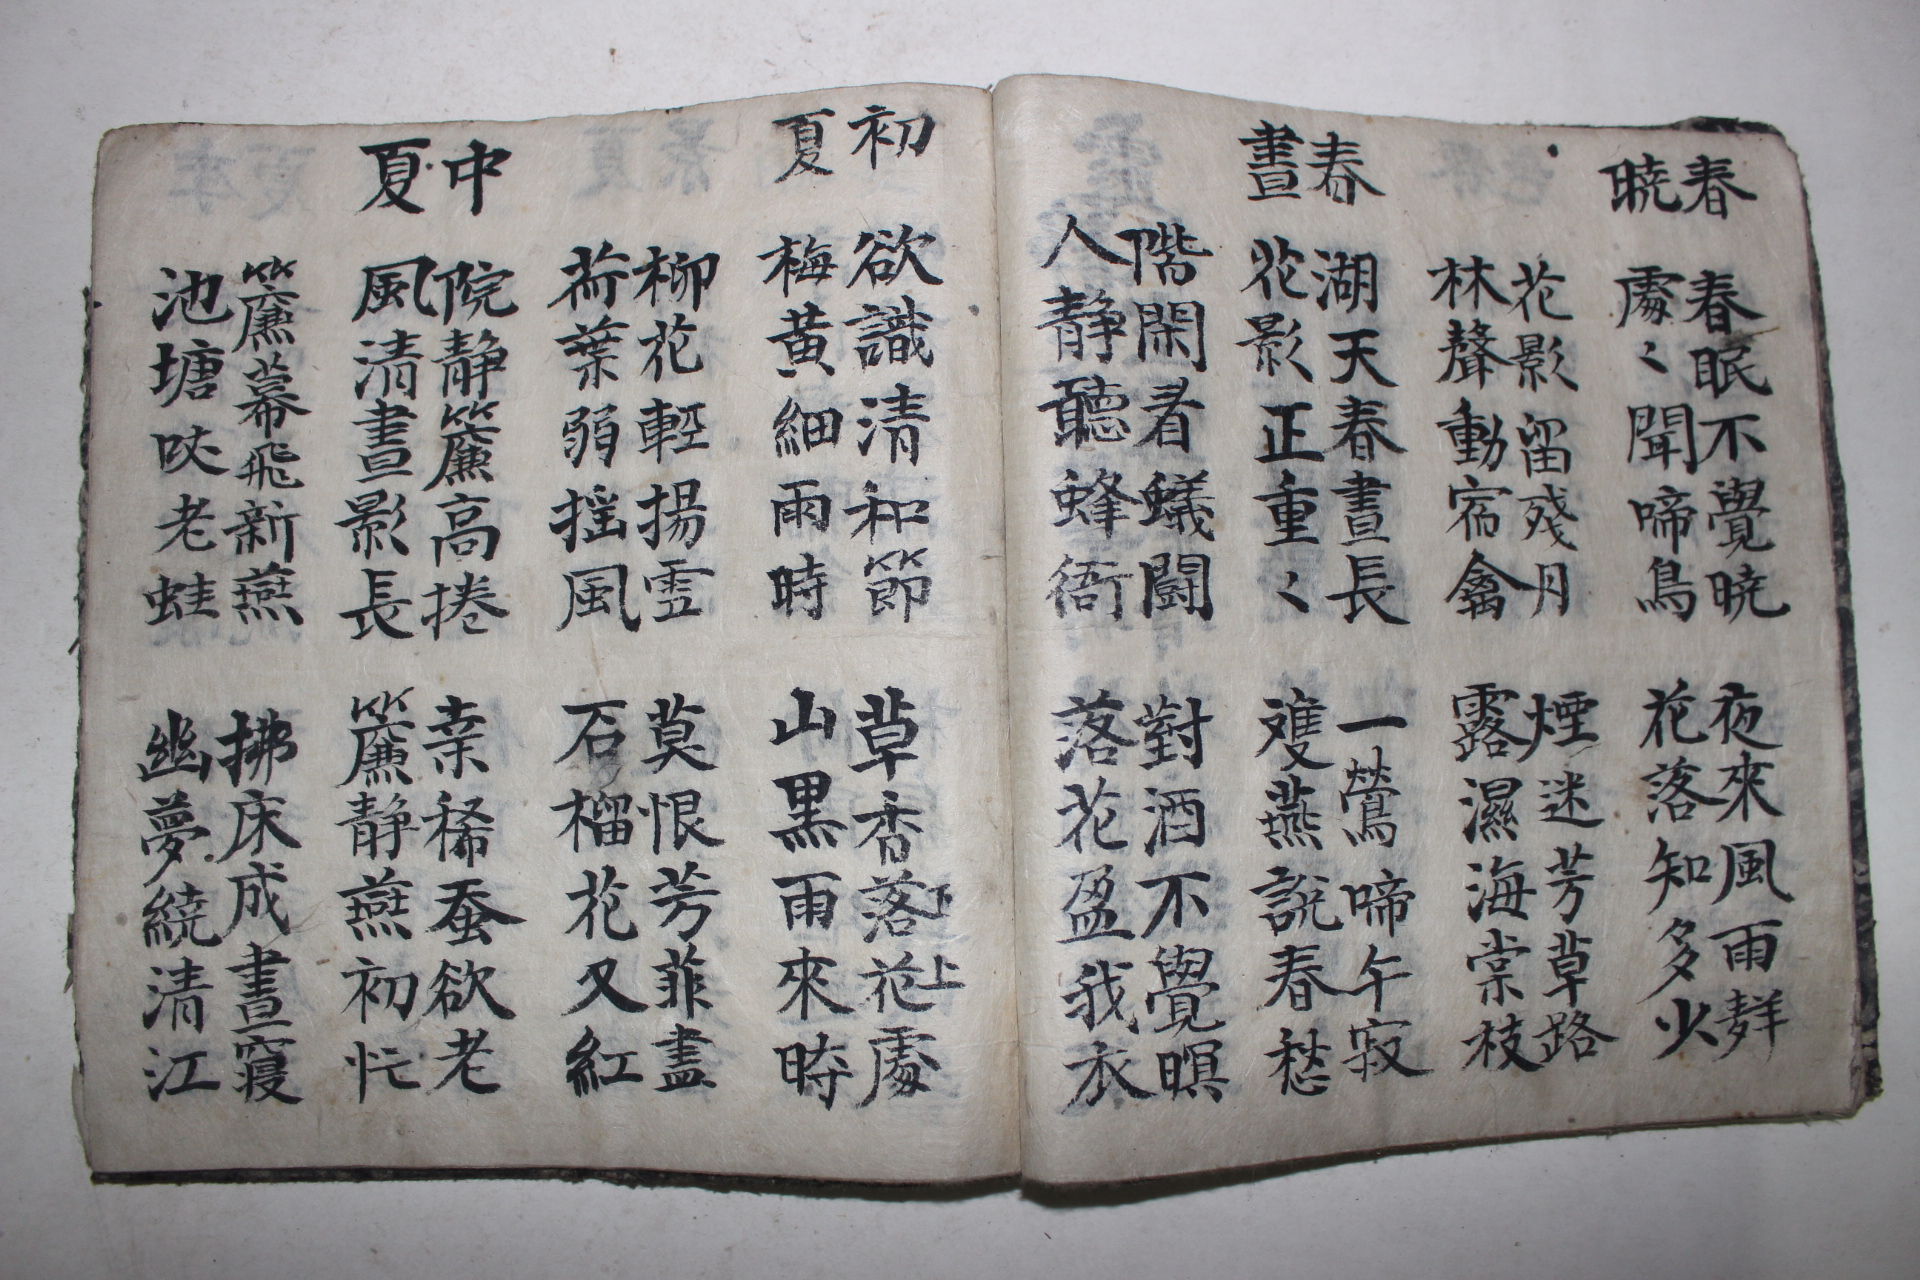 春暁
春眠不覺暁
處〻聞啼鳥
夜來風雨聲
花落知多少
花影留残月
林聲動宿禽
煙迷芳草路
露濕海棠枝
春晝
湖天春晝長
花影正重〻
一鶯啼午寂
雙燕說春愁
階閑看蟻鬪
人静聽蜂衙
對酒不覺暝
落花盈我衣
初夏
欲識清和節
梅黄細雨時
下上
草香落花處
山黒雨來時
柳花輕揚雪
荷葉弱揺風
莫恨芳菲盡
石榴花又紅
中夏
院静簾高捲
風清晝影長
桒稀蚕欲老
簾静燕初忙
簾幕飛新燕
池塘吠老蛙
拂床成晝寝
幽夢繞清江